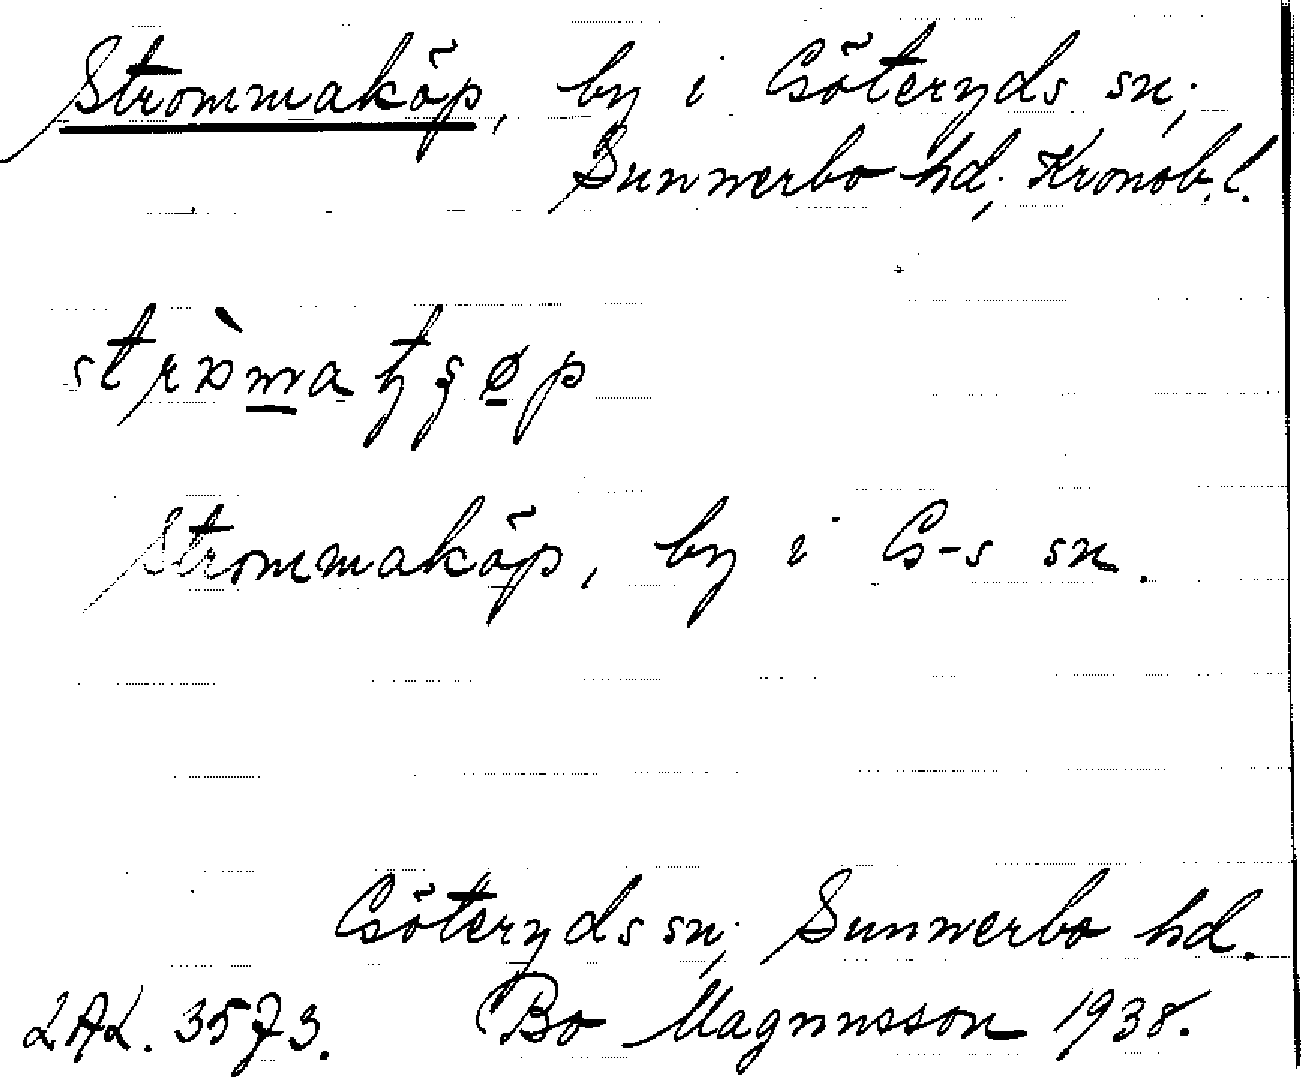 Strommaköp, by i Göteryds sn;
Sunnerbo hd; Kronob. l.
Strommaköp, by i G-s sn.
Göteryds sn; Sunnerbo hd.
LAL. 3573. Bo Magnusson 1938.